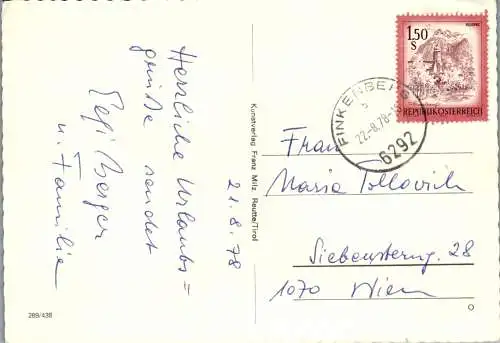 Herzliche Urlaubs=
grüße sendet
Pepi Berger
u. Familie
21.8.78
Kunstverlag Franz Milz Reutte/Tirol
289/438
1.50
S
REPUBLIK ÖSTERREICH
FINKENBERG
22.-8.78-18
6292
Frau
Maria
Siebensterng. 28
1070 Wien